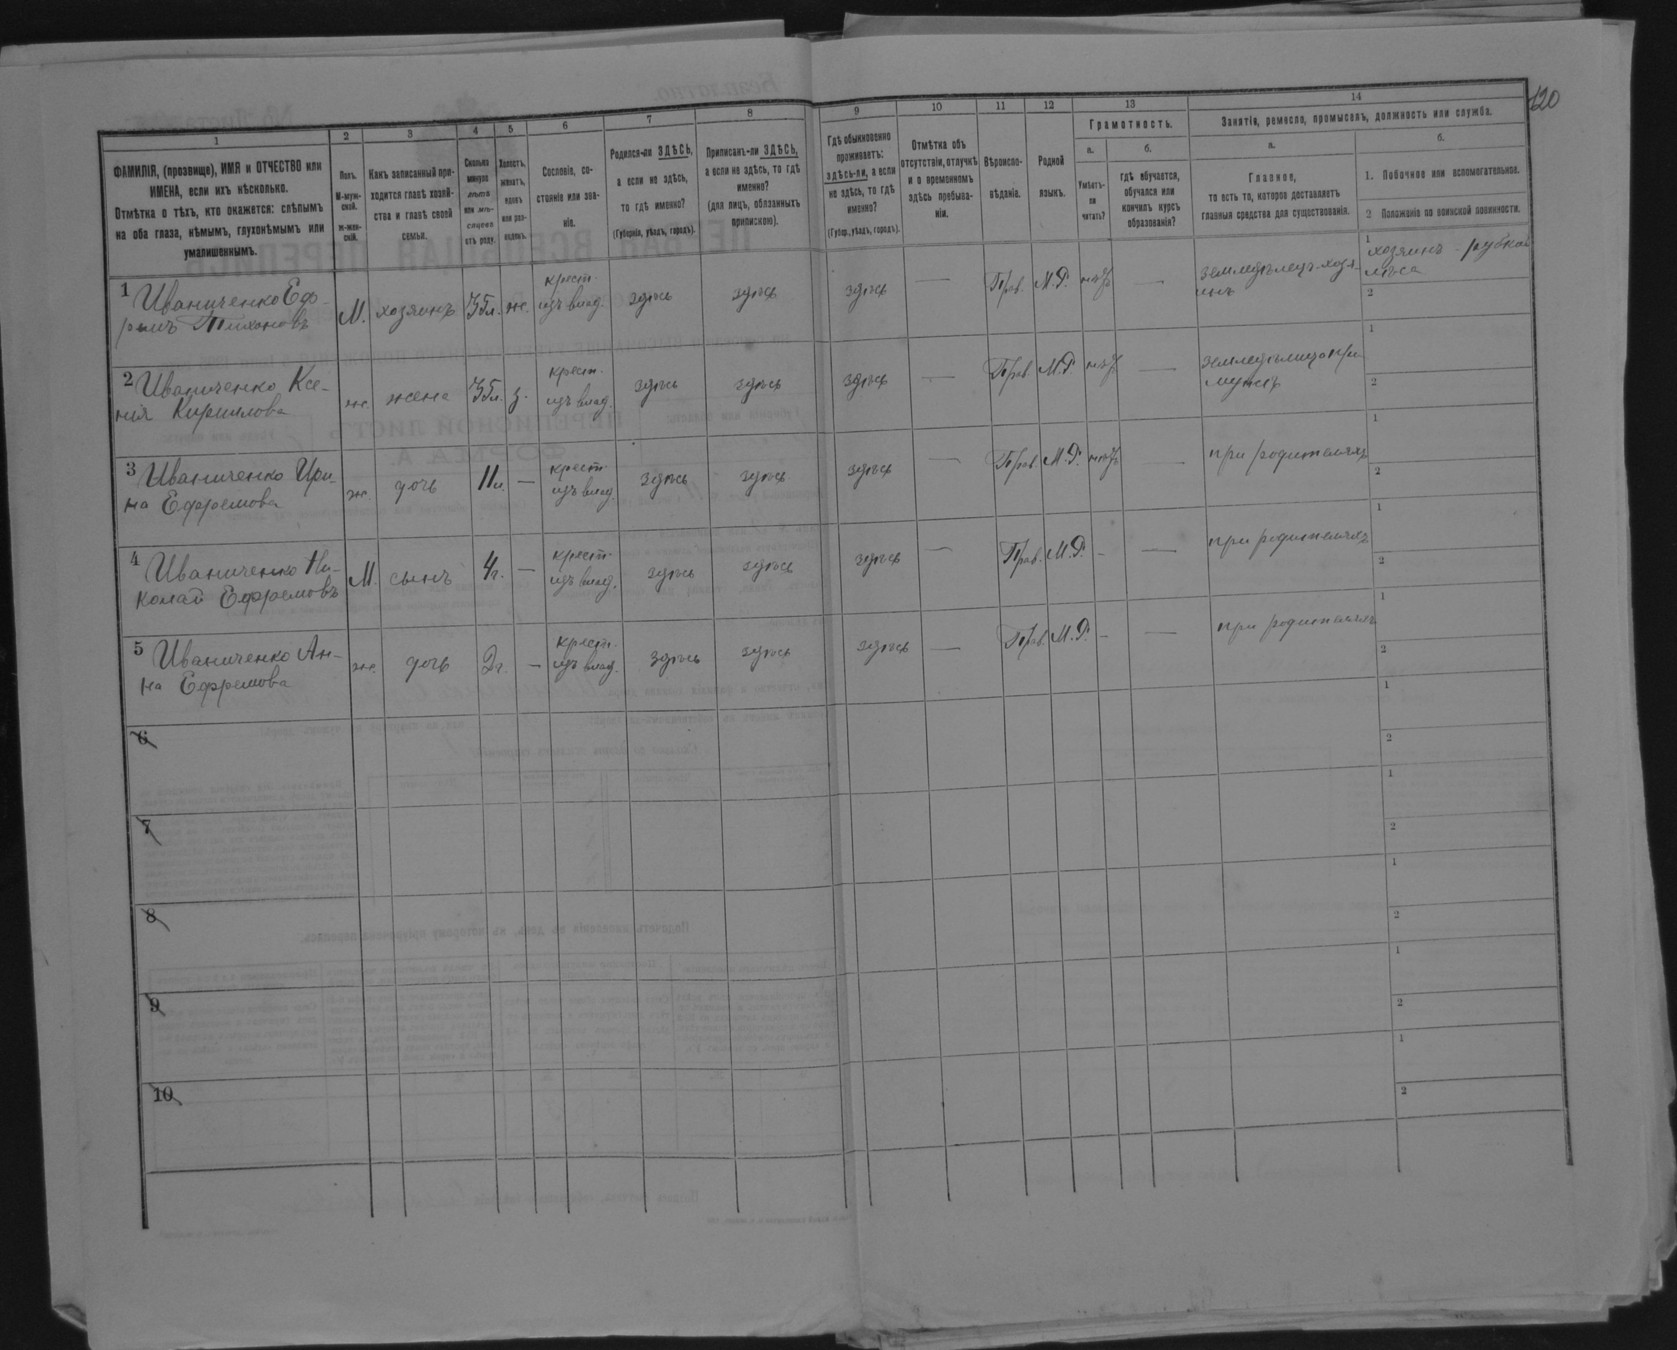 120
1
2
3
4
5
6
7
8
9
10
11
12
13
14
ФАМИЛІЯ, (прозвище), ИМЯ и ОТЧЕСТВО или
ИМЕНА, если ихъ нѣсколько.
Отмѣтка о тѣхъ, кто окажется: слѣпымъ
на оба глаза, нѣмымъ, глухонѣмымъ или
умалишеннымъ.
Полъ.
М-муж-
ской.
ж-жен-
скій.
Какъ записанный при-
ходится главѣ хозяй-
ства и главѣ своей
семьи.
Сколько
минуло
лѣтъ
или мѣ-
сяцевъ
отъ роду.
Холостъ,
женатъ,
вдовъ
или раз-
веденъ.
Сословіе, со-
стояніе или зва-
ніе.
Родился-ли ЗДѢСЬ,
а если не здѣсь,
то гдѣ именно?
(Губернія, уѣздъ, городъ).
Приписанъ-ли ЗДѢСЬ,
а если не здѣсь, то гдѣ
именно?
(для лицъ, обязанныхъ
припискою).
Гдѣ обыкновенно
проживаетъ:
здѣсь-ли, а если
не здѣсь, то гдѣ
именно?
(Губер., уѣздъ, городъ).
Отмѣтка объ
отсутствіи, отлучкѣ
и о временномъ
здѣсь пребыва-
ніи.
Вѣроиспо-
вѣданіе.
Родной
языкъ.
Грамотность.
а.
Умѣетъ-
ли
читать?
б.
гдѣ обучается,
обучался или
кончилъ курсъ
образованія?
Занятіе, ремесло, промыселъ, должность или служба.
а.
Главное,
то есть то, которое доставляетъ
главныя средства для существованія.
б.
1. Побочное или вспомогательное.
2 Положеніе по воинской повинности.
1 Иваниченко Еф-
ремъ Тихоновъ
М. хозяинъ 35л. ж. крест. изъ влад. здѣсь здѣсь здѣсь — Прав. М.Р. нѣтъ — земледѣлецъ-хозя-
инъ
1 хозяинъ - рубкой
лѣса
2
2 Иваниченко Ксе-
нія Кириллова
ж. жена 35л. з. крест. изъ влад. здѣсь здѣсь здѣсь — Прав. М.Р. нѣтъ — земледѣлица при
мужѣ
1
2
3 Иваниченко Ири-
на Ефремова
ж. дочь 11л. — крест. изъ влад. здѣсь здѣсь здѣсь — Прав. М.Р. нѣтъ — при родителяхъ
1
2
4 Иваниченко Ни-
колай Ефремовъ
М. сынъ 4г. — крест. изъ влад. здѣсь здѣсь здѣсь — Прав. М.Р. - — при родителяхъ
1
2
5 Иваниченко Ан-
на Ефремова
ж. дочь 2г. — крест. изъ влад. здѣсь здѣсь здѣсь — Прав. М.Р. - — при родителяхъ
1
2
6
1
2
7
1
2
8
1
2
9
1
2
10
1
2